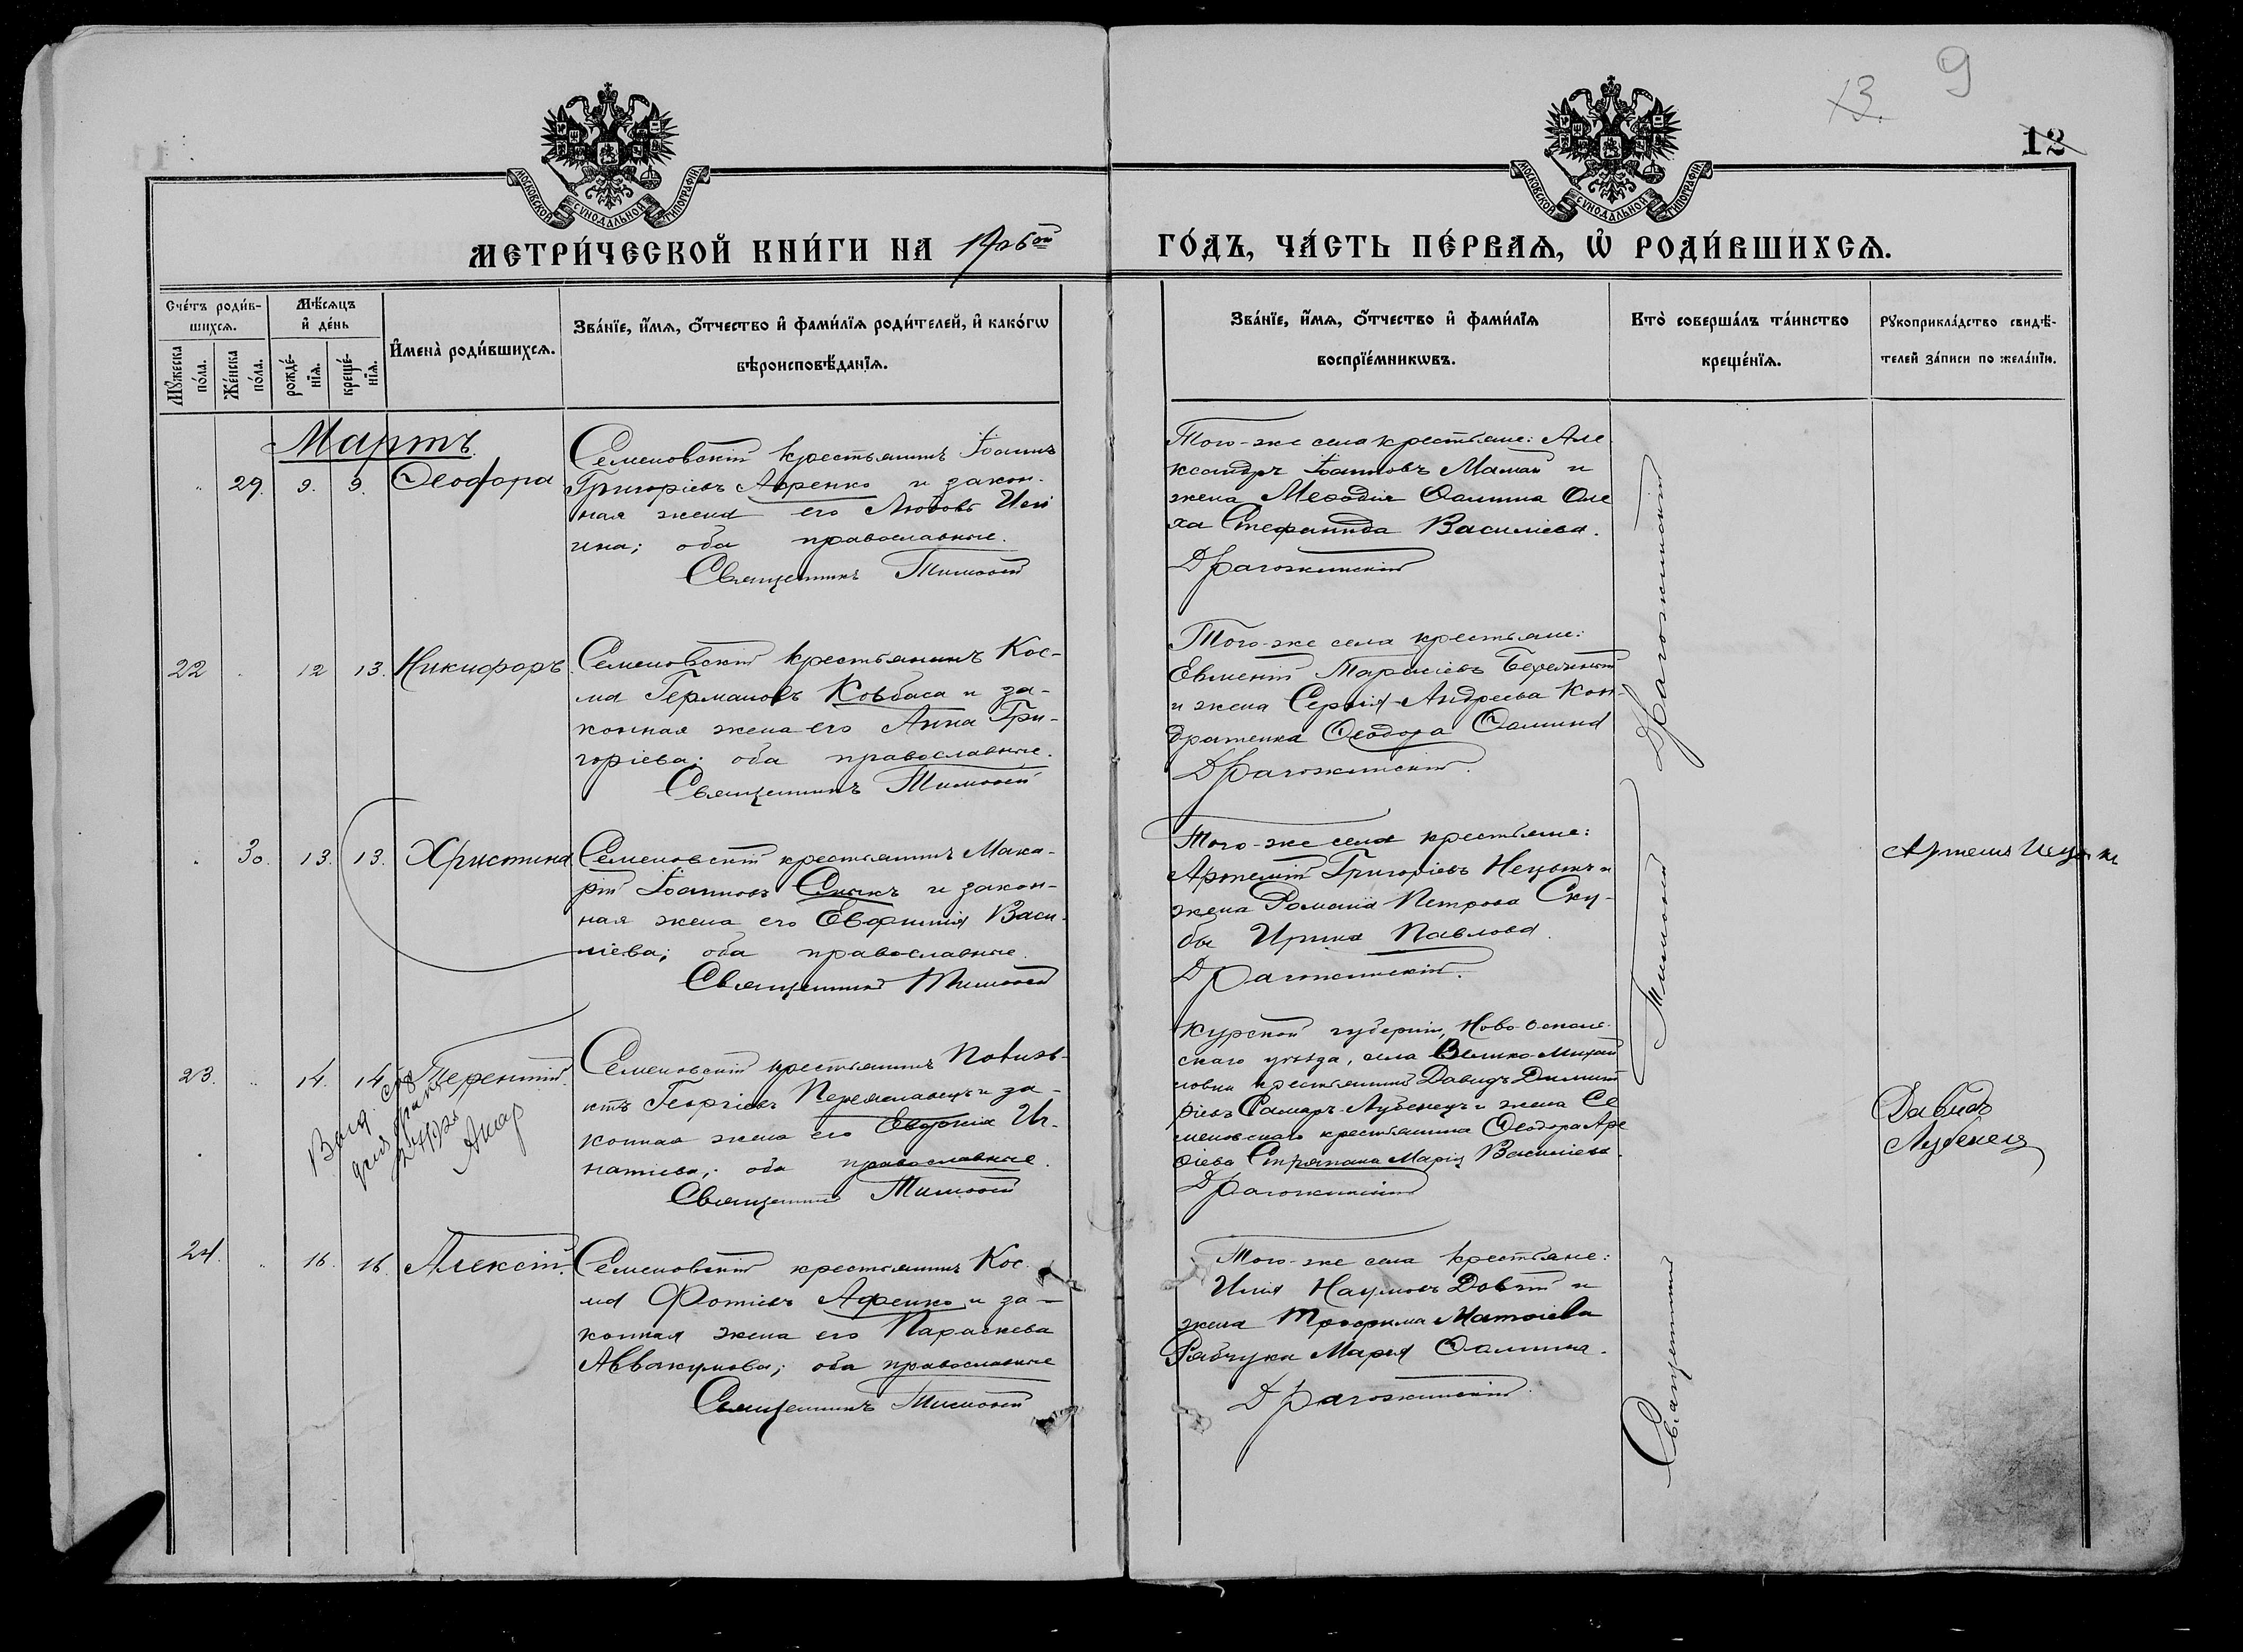 9
13.
12
МОСКОВСКОЙ СѴНОДАЛЬНОЙ ТИПОГРАФІИ
МОСКОВСКОЙ СѴНОДАЛЬНОЙ ТИПОГРАФІИ
МЕТРИ́ЧЕСКОЙ КНИ́ГИ НА 1906ой
ГО́ДЪ, ЧА́СТЬ ПЕ́РВАѦ, Ѡ҆ РОДИ́ВШИХСѦ.
Сче́тъ роди́в-
шихсѧ.
Мѣ́сѧцъ
и҆ де́нь
Мꙋ́жеска
по́ла.
Же́нска
по́ла.
рожде́-
нїѧ.
креще́-
нїѧ.
И҆мена̀ роди́вшихсѧ.
Зва́нїе, и҆́мѧ, ѻ҆́тчество и҆ фами́лїѧ роди́телей, и҆ како́гѡ
вѣроисповѣ́данїѧ.
Зва́нїе, и҆́мѧ, ѻ҆́тчество и҆ фами́лїѧ
воспрїе́мникѡвъ.
Кто̀ соверша́лъ та́инство
креще́нїѧ.
Рꙋкоприкла́дство свидѣ́-
телей за́писи по жела́нїю.
Мартъ
29. 9. 9. Ѳеофора
Семеновскій крестьянинъ Іоаннъ
Григоріевъ Авренко и закон-
ная жена его Любовь
ина; оба православные.
Священникъ Тимоѳей
Того-же села крестьяне: Але
ксандръ Іоанновъ Мамай и
жена Меѳодія Ѳомина Оле
ха Стефанида Василіева.
Драгожинскій
22 12 13. Никифоръ
Семеновскій крестьянинъ Кос-
ма Германовъ Ковбаса и за-
конная жена его Анна Гри-
горіева; оба православные.
Священникъ Тимоѳей
Того-же села крестьяне:
Евменій Марк
и жена Сергія Андреева Кон-
дратенка Ѳеодора Ѳомина
Драгожинскій.
30. 13. 13. Христина
Семеновскій крестьянинъ Мака-
рій Іоанновъ и закон-
ная жена его Евфимія Васи-
ліева; оба православные.
Священникъ Тимоѳей
Того-же села крестьяне:
Артемій Григоріевъ Нецыкъ и
жена Романа Петрова Ску-
бы Ирина Павлова.
Драгожинскій.
Артемъ
23. 14. 14 Терентій.
Семеновскій крестьянинъ
Георгіевъ Переяславецъ и за-
конная жена его Евдокія Иг-
натіева; оба православные.
Священникъ Тимоѳей
Курской губерніи, Ново-Осколь-
скаго уѣзда, села Велико-Михай
ловки крестьянинъ Давидъ Димит
ріевъ Самаръ-Лубенецъ и жена Се
меновскаго крестьянина Ѳеодора Аре
ѳіева Стрепана Марія Василіева.
Драгожинскій
Давидъ
Лубенец
24. 16. 16. Алексій.
Семеновскій крестьянинъ Кос-
ма Фотіевъ Афенко и за-
конная жена его Параскева
Аввакумова; оба православные
Священникъ Тимоѳей
Того-же села крестьяне:
Илія Наумовъ Довгій и
жена Трофима Матѳіева
Рябчука Марія Ѳомина.
Драгожинскій.
Священникъ Тимоѳей Драгожинскій